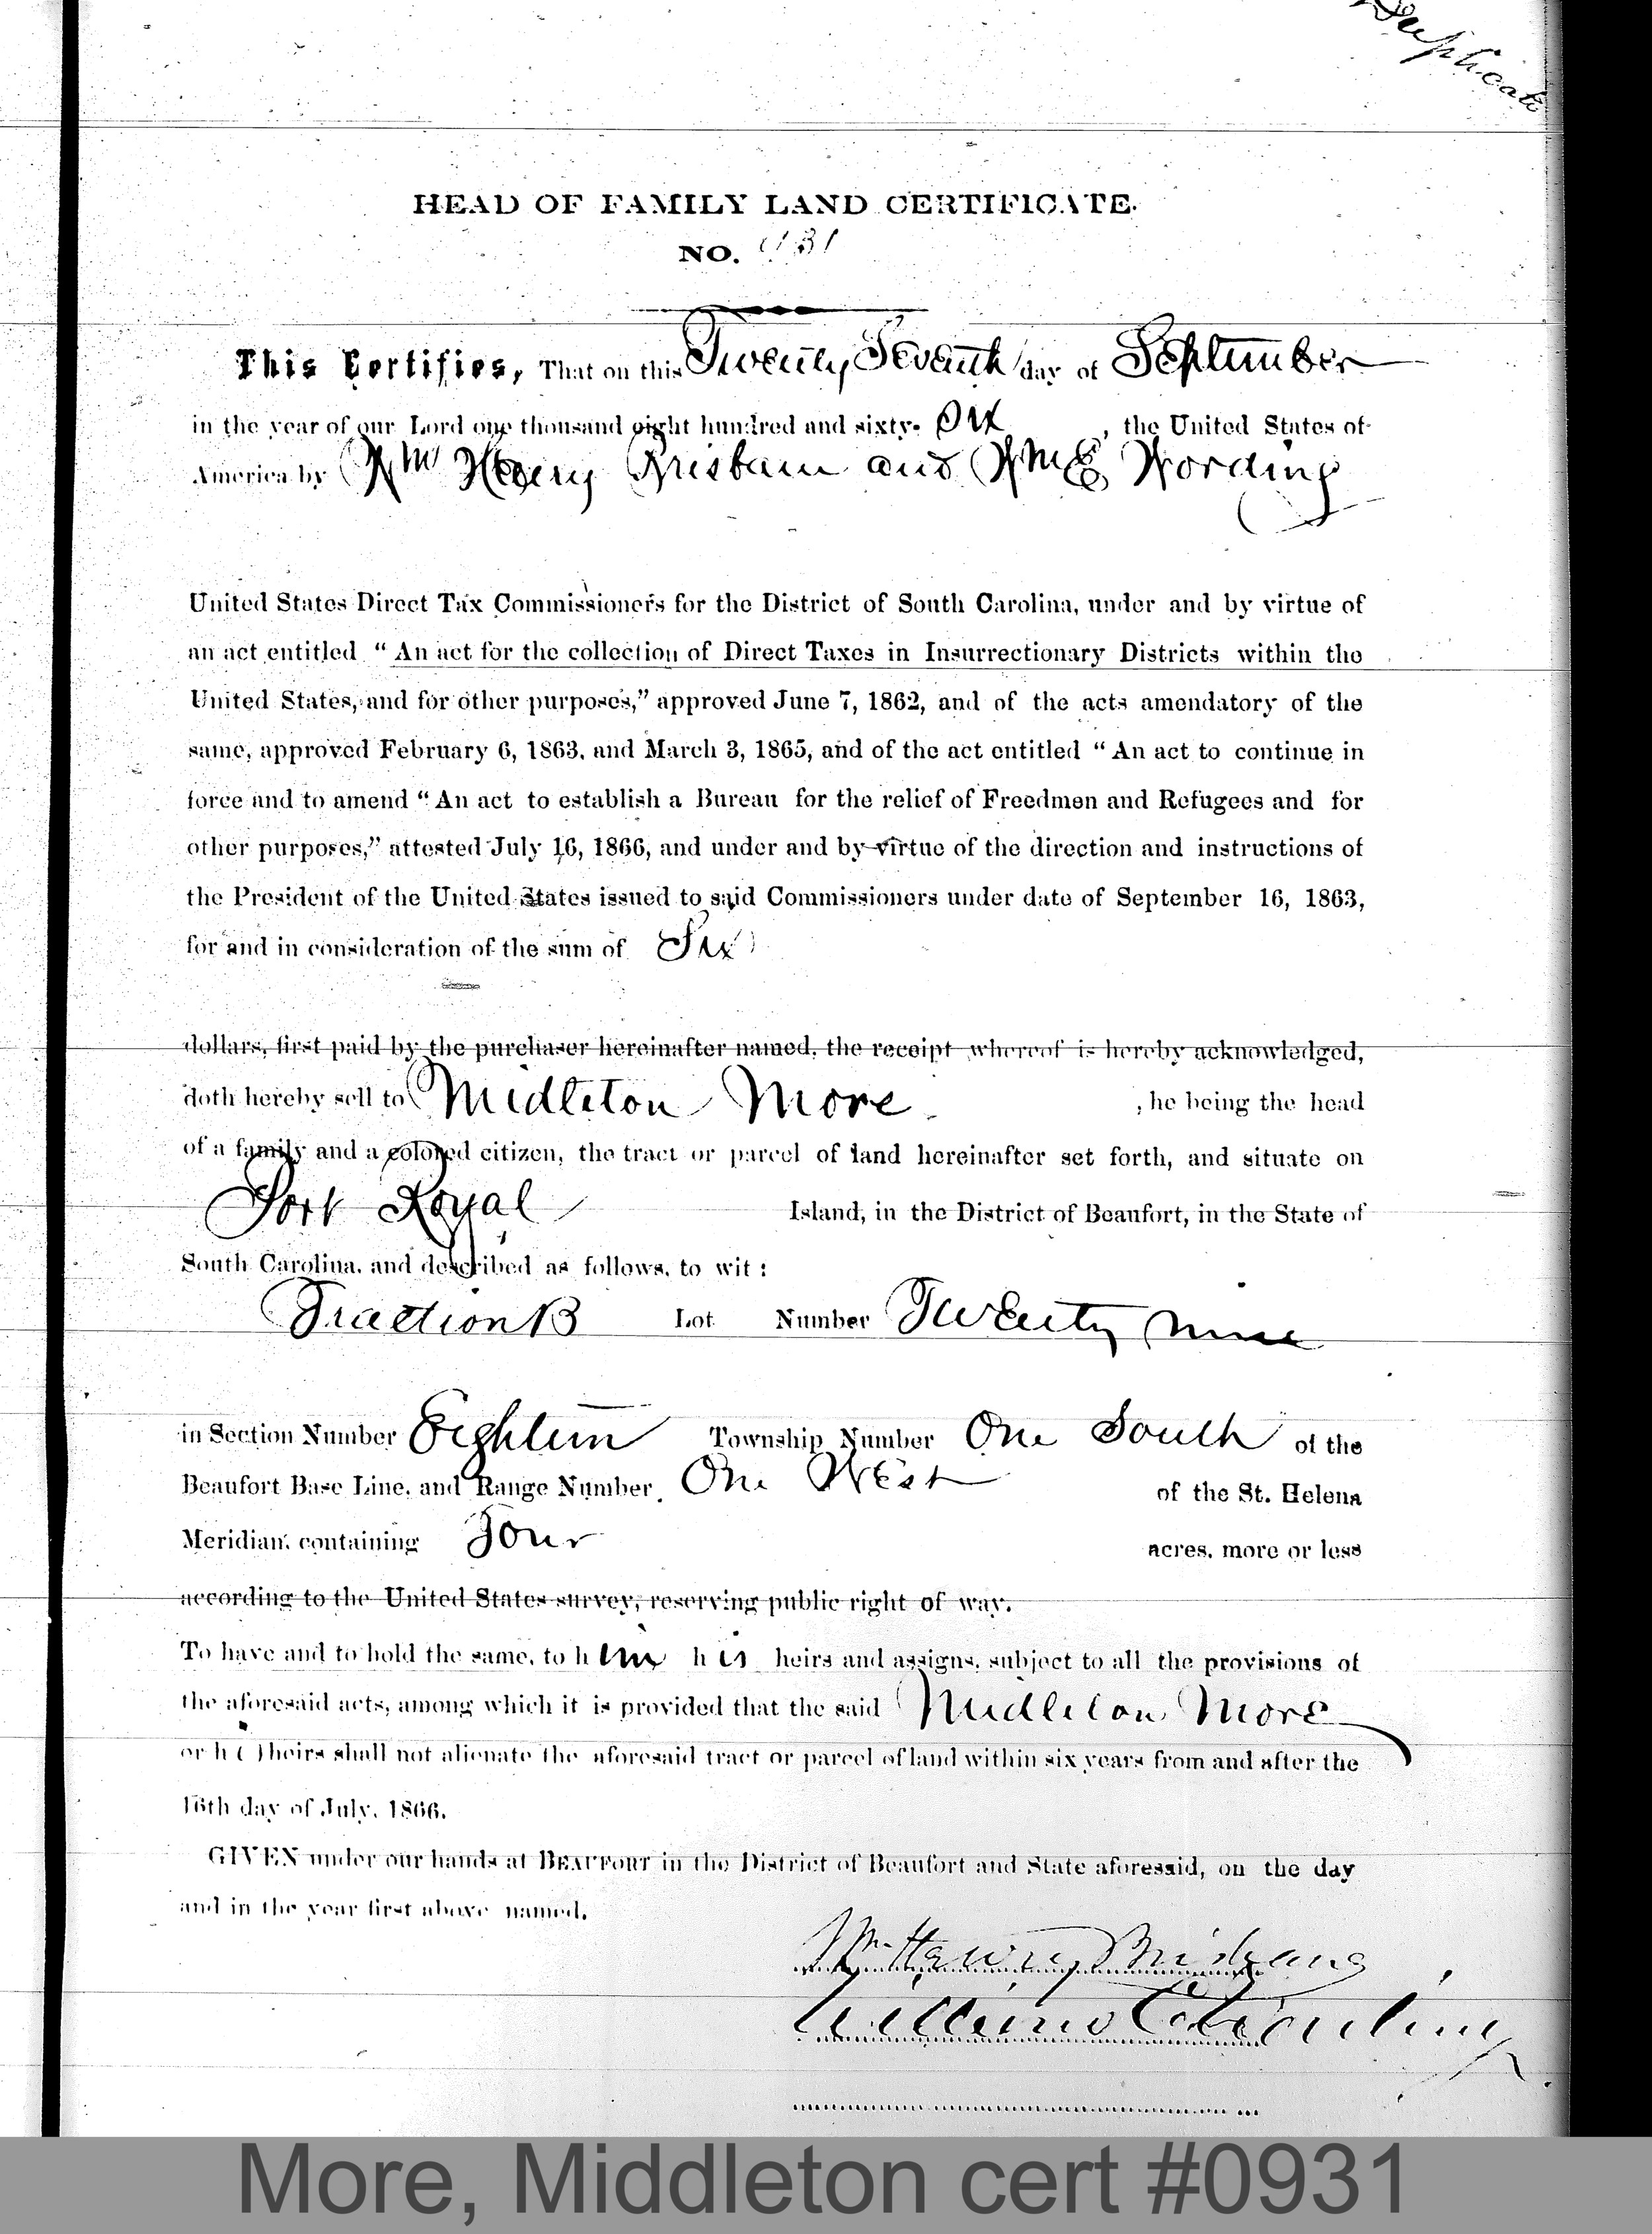 Duplicate
HEAD OF FAMILY LAND CERTIFICATE.
NO. 931
This Certifies, That on this Twenty Seventh day of September
in the year of our Lord one thousand eight hundred and sixty- six, the United States of
America by Wm Henry Brisbane and Wm E Wording
United States Direct Tax Commissioners for the District of South Carolina, under and by virtue of
an act entitled "An act for the collection of Direct Taxes in Insurrectionary Districts within the
United States, and for other purposes," approved June 7, 1862, and of the acts amendatory of the
same, approved February 6, 1863, and March 3, 1865, and of the act entitled "An act to continue in
force and to amend "An act to establish a Bureau for the relief of Freedmen and Refugees and for
other purposes," attested July 16, 1866, and under and by virtue of the direction and instructions of
the President of the United States issued to said Commissioners under date of September 16, 1863,
for and in consideration of the sum of Six
dollars, first paid by the purchaser hereinafter named, the receipt whereof is hereby acknowledged,
doth hereby sell to Midleton More, he being the head
of a family and a colored citizen, the tract or parcel of land hereinafter set forth, and situate on
Port Royal Island, in the District of Beaufort, in the State of
South Carolina, and described as follows, to wit:
Fraction B Lot Number Twenty nine
in Section Number Eighteen Township Number One South of the
Beaufort Base Line, and Range Number One West of the St. Helena
Meridian, containing Four acres, more or less
according to the United States survey, reserving public right of way.
To have and to hold the same, to him his heirs and assigns, subject to all the provisions of
the aforesaid acts, among which it is provided that the said Midleton More
or h heirs shall not alienate the aforesaid tract or parcel of land within six years from and after the
16th day of July, 1866.
GIVEN under our hands at BEAUFORT in the District of Beaufort and State aforesaid, on the day
and in the year first above named.
Wm. Henry Brisbane
William E Wording
More, Middleton cert #0931